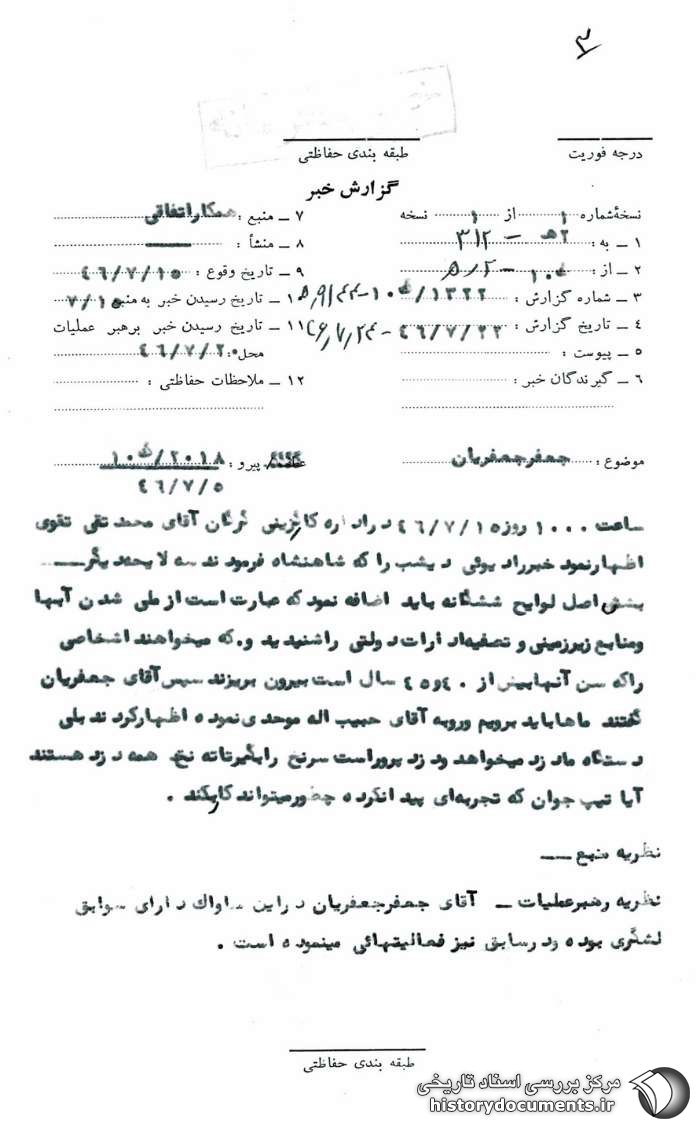 ۳
درجه فوریت
طبقه بندی حفاظتی
گزارش خبر
نسخهٔ شماره ۱ از ۱ نسخه
۷ ــ منبع : همکار اتفاقی
۱ ــ به : ۲هـ – ۳۱۲
۸ ــ منشأ :
۲ ــ از :
۹ ــ تاریخ وقوع : ۴۶/۷/۱۵
۳ ــ شماره گزارش :
۱۰ ــ تاریخ رسیدن خبر به منبع ۷/۱۵
۴ ــ تاریخ گزارش : ۴۶/۷/۲۳ – ۴۶/۷/۲۴
۱۱ ــ تاریخ رسیدن خبر برهبر عملیات
محل : ۴۶/۷/۲۰
۵ ــ پیوست :
۶ ــ گیرندگان خبر :
۱۲ ــ ملاحظات حفاظتی :
موضوع : جعفر جعفریان
پیرو : ۲۰۱۸/
۴۶/۷/۵
ساعت ۱۰۰۰ روز ۴۶/۷/۱۵ در اداره کاگزینی گرگان آقای محمد تقی تقوی
اظهار نمود خبر رادیوئی دیشب را که شاهنشاه فرمودند سه لایحه دیگر
بشش اصل لوایح ششگانه باید اضافه نمود که عبارت است از ملی شدن آبها
ومنابع زیرزمینی و تصفیه ادارات دولتی را شنیدید و که میخواهند اشخاصی
را که سن آنها بیش از ۴۰ و ۴۵ سال است بیرون بریزند سپس آقای جعفریان
گفتند ماها باید برویم و رو به آقای حبیب اله موحدی نموده اظهار کردند بلی
دستگاه ما دزد میخواهد و دزد پرور است سر نخ را بگیر تا ته نخ همه دزد هستند
آیا تیپ جوان که تجربه‌ای پیدا نکرده چطور میتواند کار بکند .
نظریه منبع ــ
نظریه رهبر عملیات ــ آقای جعفر جعفریان در این ساواک دارای سوابق
لشگری بوده و در سابق نیز فعالیتهائی مینموده است .
طبقه بندی حفاظتی
مرکز بررسی اسناد تاریخی
historydocuments.ir